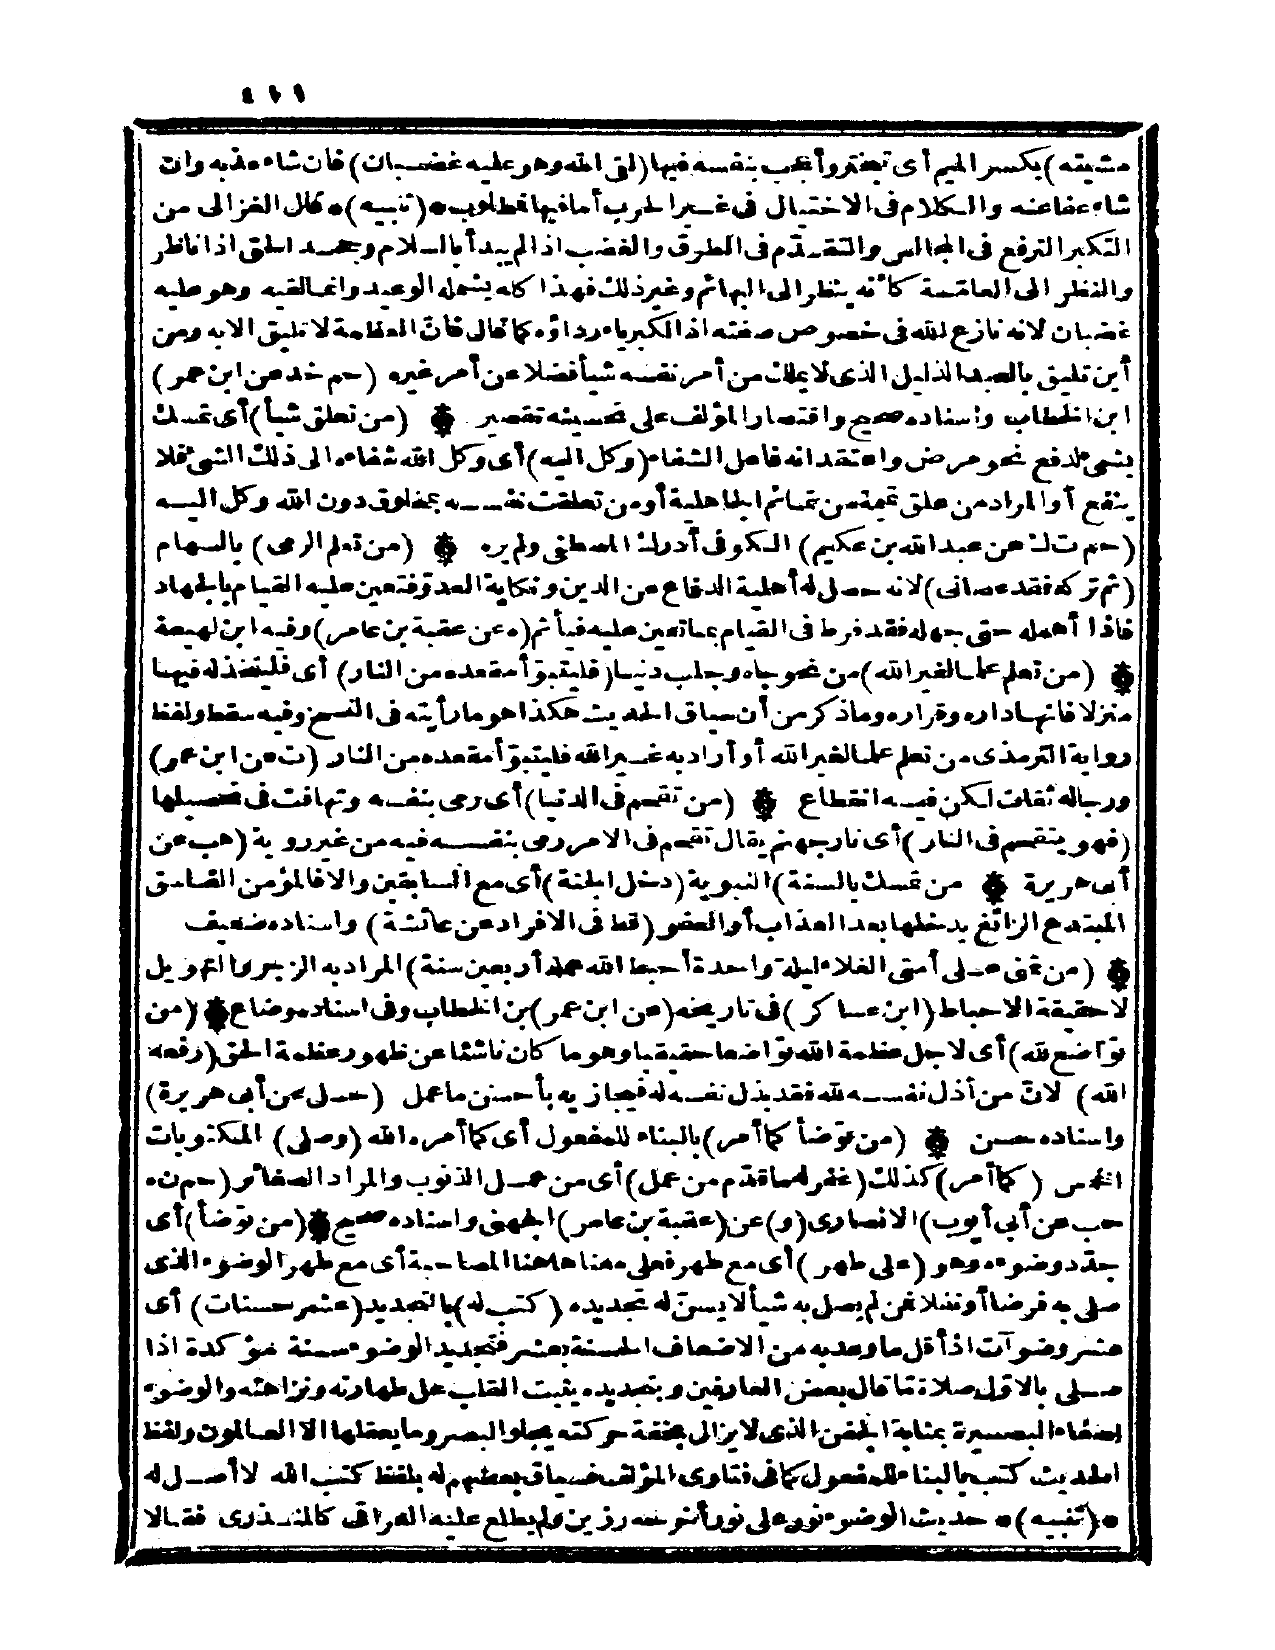 ٤١١
مشيته) بكسر الميم أى تبختر وأعجب بنفسه فيها (لقى الله وهو عليه غضبان) فان شاء عذبه وان
شاء عفا عنه والكلام فى الاختيال فى غير الحرب أما فيها فمطلوب • (تنبيه) • قال الغزالى من
التكبر الترفع فى المجالس والتقدّم فى الطرق والغضب اذا لم يبدأ بالسلام وجحد الحق اذا ناظر
والنظر الى العامّة كأنه ينظر الى البهائم وغير ذلك فهذا كله يشمله الوعيد وانما لقيه وهو عليه
غضبان لانه نازع لله فى خصوص صفته اذ الكبرياء رداؤه كما قال فانّ العظمة لا تليق الا به ومن
أين تليق بالعبد الذليل الذى لا يملك من أمر نفسه شيأ فضلا عن أمر غيره (حم خد عن ابن عمر)
ابن الخطاب واسناده صحيح واقتصار المؤلف على تحسينه تقصير (من تعلق شيأ) أى تمسك
بشئ لدفع نحو مرض واعتقد انه فاعل الشفاء (وكل اليه) أى وكل الله شفاءه الى ذلك الشئ فلا
ينفع أو المراد من علق تميمة من تمائم الجاهلية أو من تعلقت نفسه بمخلوق دون الله وكل اليه
(حم ت ك عن عبد الله بن عكيم) الكوفى أدرك المصطفى ولم يره (من تعلم الرمى) بالسهام
(ثم تركه فقد عصانى) لانه حصل له أهلية الدفاع عن الدين ونكاية العدوّ فتعين عليه القيام بالجهاد
فاذا أهمله حتى جهله فقد فرط فى القيام بما تعين عليه فيأثم (ه عن عقبة بن عامر) وفيه ابن لهيعة
(من تعلم علما لغير الله) من نحو جاه وجلب دنيا (فليتبوّأ مقعده من النار) أى فليتخذ له فيها
منزلا فانها داره وقراره وما ذكر من أن سياق الحديث هكذا هو ما رأيته فى النسخ وفيه سقط ولفظ
رواية الترمذى من تعلم علما لغير الله أو أراد به غير الله فليتبوّأ مقعده من النار (ت عن ابن عمر)
ورجاله ثقات لكن فيه انقطاع (من تقحم فى الدنيا) أى رمى بنفسه وتهافت فى تحصيلها
(فهو يتقحم فى النار) أى نار جهنم يقال تقحم فى الامر رمى بنفسه فيه من غير روية (هب عن
أبى هريرة من تمسك بالسنة) النبوية (دخل الجنة) أى مع السابقين والا فالمؤمن الفاسق
المبتدع الزائغ يدخلها بعد العذاب أو العفو (قط فى الافراد عن عائشة) واسناده ضعيف
(من تمنى على أمتى الغلاء ليلة واحدة أحبط الله عمله أربعين سنة) المراد به الزجر والتهويل
لا حقيقة الاحباط (ابن عساكر) فى تاريخه (عن ابن عمر) بن الخطاب وفى اسناده وضاع (من
تواضع لله) أى لاجل عظمة الله تواضعا حقيقيا وهو ما كان ناشئا عن ظهور عظمة الحق (رفعه
الله) لانّ من أذل نفسه لله فقد بذل نفسه له فيجازيه بأحسن ما عمل (حل عن أبى هريرة)
واسناده حسن (من توضأ كما أمر) بالبناء للمفعول أى كما أمره الله (وصلى) المكتوبات
الخمس (كما أمر) كذلك (غفر له ما قدّم من عمل) أى من عمل الذنوب والمراد الصغائر (حم ن ه
حب عن أبى أيوب) الانصارى (و) عن (عقبة بن عامر) الجهنى واسناده صحيح (من توضأ) أى
جدّد وضوءه وهو (على طهر) أى مع طهر فعلى معناها هنا المصاحبة أى مع طهر الوضوء الذى
صلى به فرضا أو نفلا فمن لم يصل به شيأ لا يسنّ له تجديده (كتب له) بالتجديد (عشر حسنات) أى
عشر وضوآت اذ أقل ما وعد به من الاضعاف الحسنة بعشر فتجديد الوضوء سنة مؤكدة اذا
صلى بالاوّل صلاة ما قال بعض العارفين وتجديده يثبت القلب على طهارته ونزاهته والوضوء
لصفاء البصيرة بمثابة الجفن الذى لا يزال بخفة حركته يجلو البصر وما يعقلها الا العالمون ولفظ
الحديث كتب بالبناء للمفعول كما فى فتاوى المؤلف فسياق بعضهم له بلفظ كتب الله لا أصل له
• (تنبيه) • حديث الوضوء نور على نور أخرجه رزين ولم يطلع عليه العراقى كالمنذرى فقالا